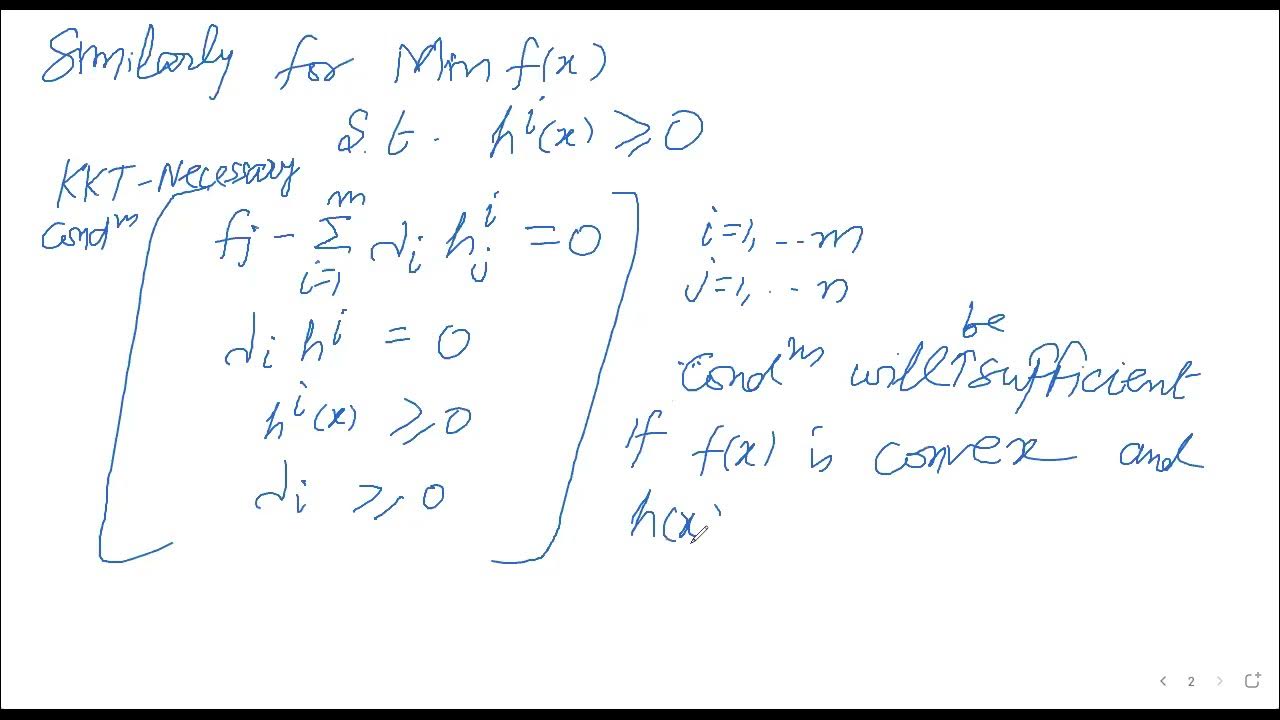 Similarly for Min f(x)
S.t. hⁱ(x) ≥ 0
KKT-Necessary
condⁿ
fj - Σᵢ₌₁ᵐ λi hⱼⁱ = 0
λi hⁱ = 0
hⁱ(x) ≥ 0
λi ≥ 0
i=1, ..m
j=1, ..n
condⁿ will ↑ be sufficient
If f(x) is convex and
h(x)
2